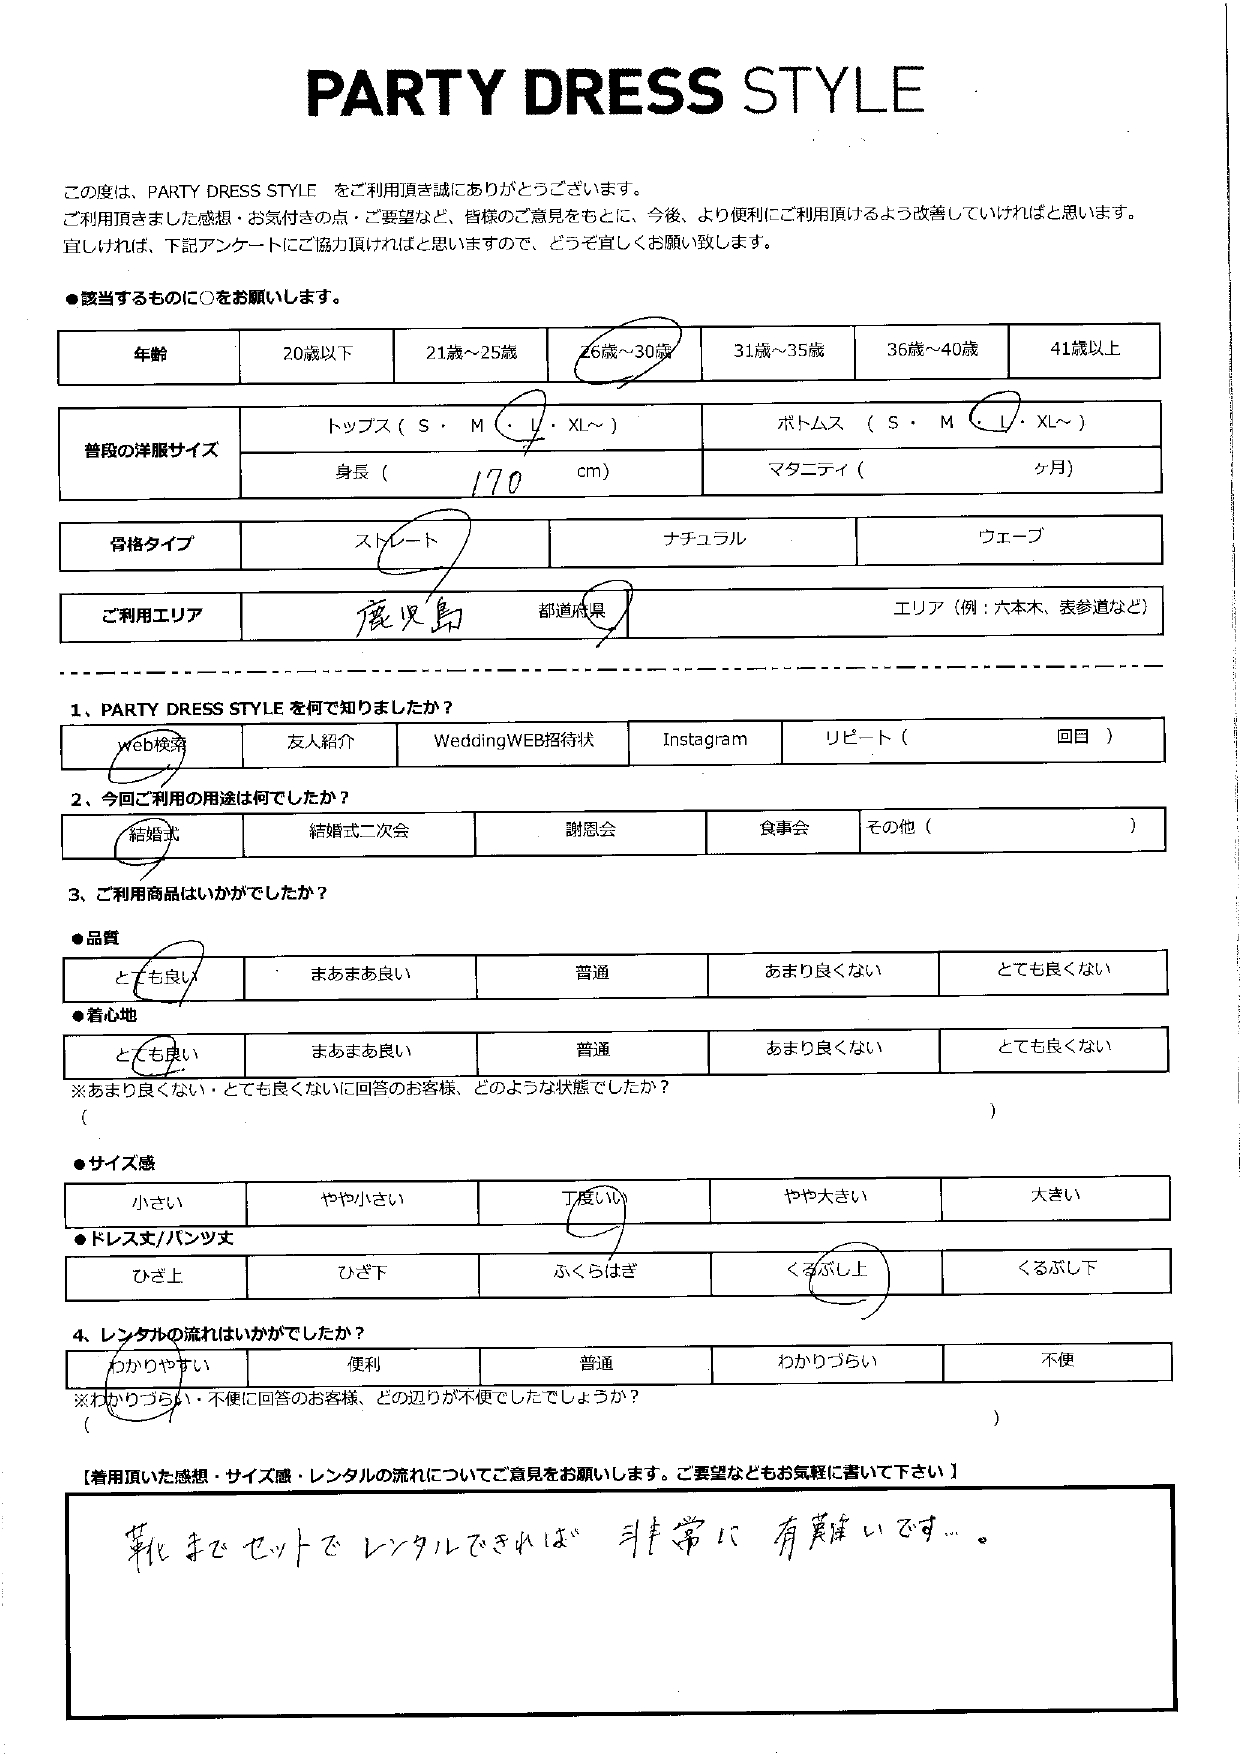 PARTY DRESS STYLE
この度は、PARTY DRESS STYLE　をご利用頂き誠にありがとうございます。
ご利用頂きました感想・お気付きの点・ご要望など、皆様のご意見をもとに、今後、より便利にご利用頂けるよう改善していければと思います。
宜しければ、下記アンケートにご協力頂ければと思いますので、どうぞ宜しくお願い致します。
●該当するものに○をお願いします。
年齢 20歳以下 21歳～25歳 26歳～30歳 31歳～35歳 36歳～40歳 41歳以上
普段の洋服サイズ トップス ( S ・ M ・ L ・ XL～ ) ボトムス ( S ・ M ・ L ・ XL～ )
身長 ( 170 cm) マタニティ ( ヶ月)
骨格タイプ ストレート ナチュラル ウェーブ
ご利用エリア 鹿児島 都道府県 エリア（例：六本木、表参道など）
1、PARTY DRESS STYLE を何で知りましたか？
web検索 友人紹介 WeddingWEB招待状 Instagram リピート ( 回目 )
2、今回ご利用の用途は何でしたか？
結婚式 結婚式二次会 謝恩会 食事会 その他 ( )
3、ご利用商品はいかがでしたか？
●品質
とても良い まあまあ良い 普通 あまり良くない とても良くない
●着心地
とても良い まあまあ良い 普通 あまり良くない とても良くない
※あまり良くない・とても良くないに回答のお客様、どのような状態でしたか？
( )
●サイズ感
小さい やや小さい 丁度いい やや大きい 大きい
●ドレス丈/パンツ丈
ひざ上 ひざ下 ふくらはぎ くるぶし上 くるぶし下
4、レンタルの流れはいかがでしたか？
わかりやすい 便利 普通 わかりづらい 不便
※わかりづらい・不便に回答のお客様、どの辺りが不便でしたでしょうか？
( )
【着用頂いた感想・サイズ感・レンタルの流れについてご意見をお願いします。ご要望などもお気軽に書いて下さい 】
靴までセットでレンタルできれば 非常に 有難いです…。